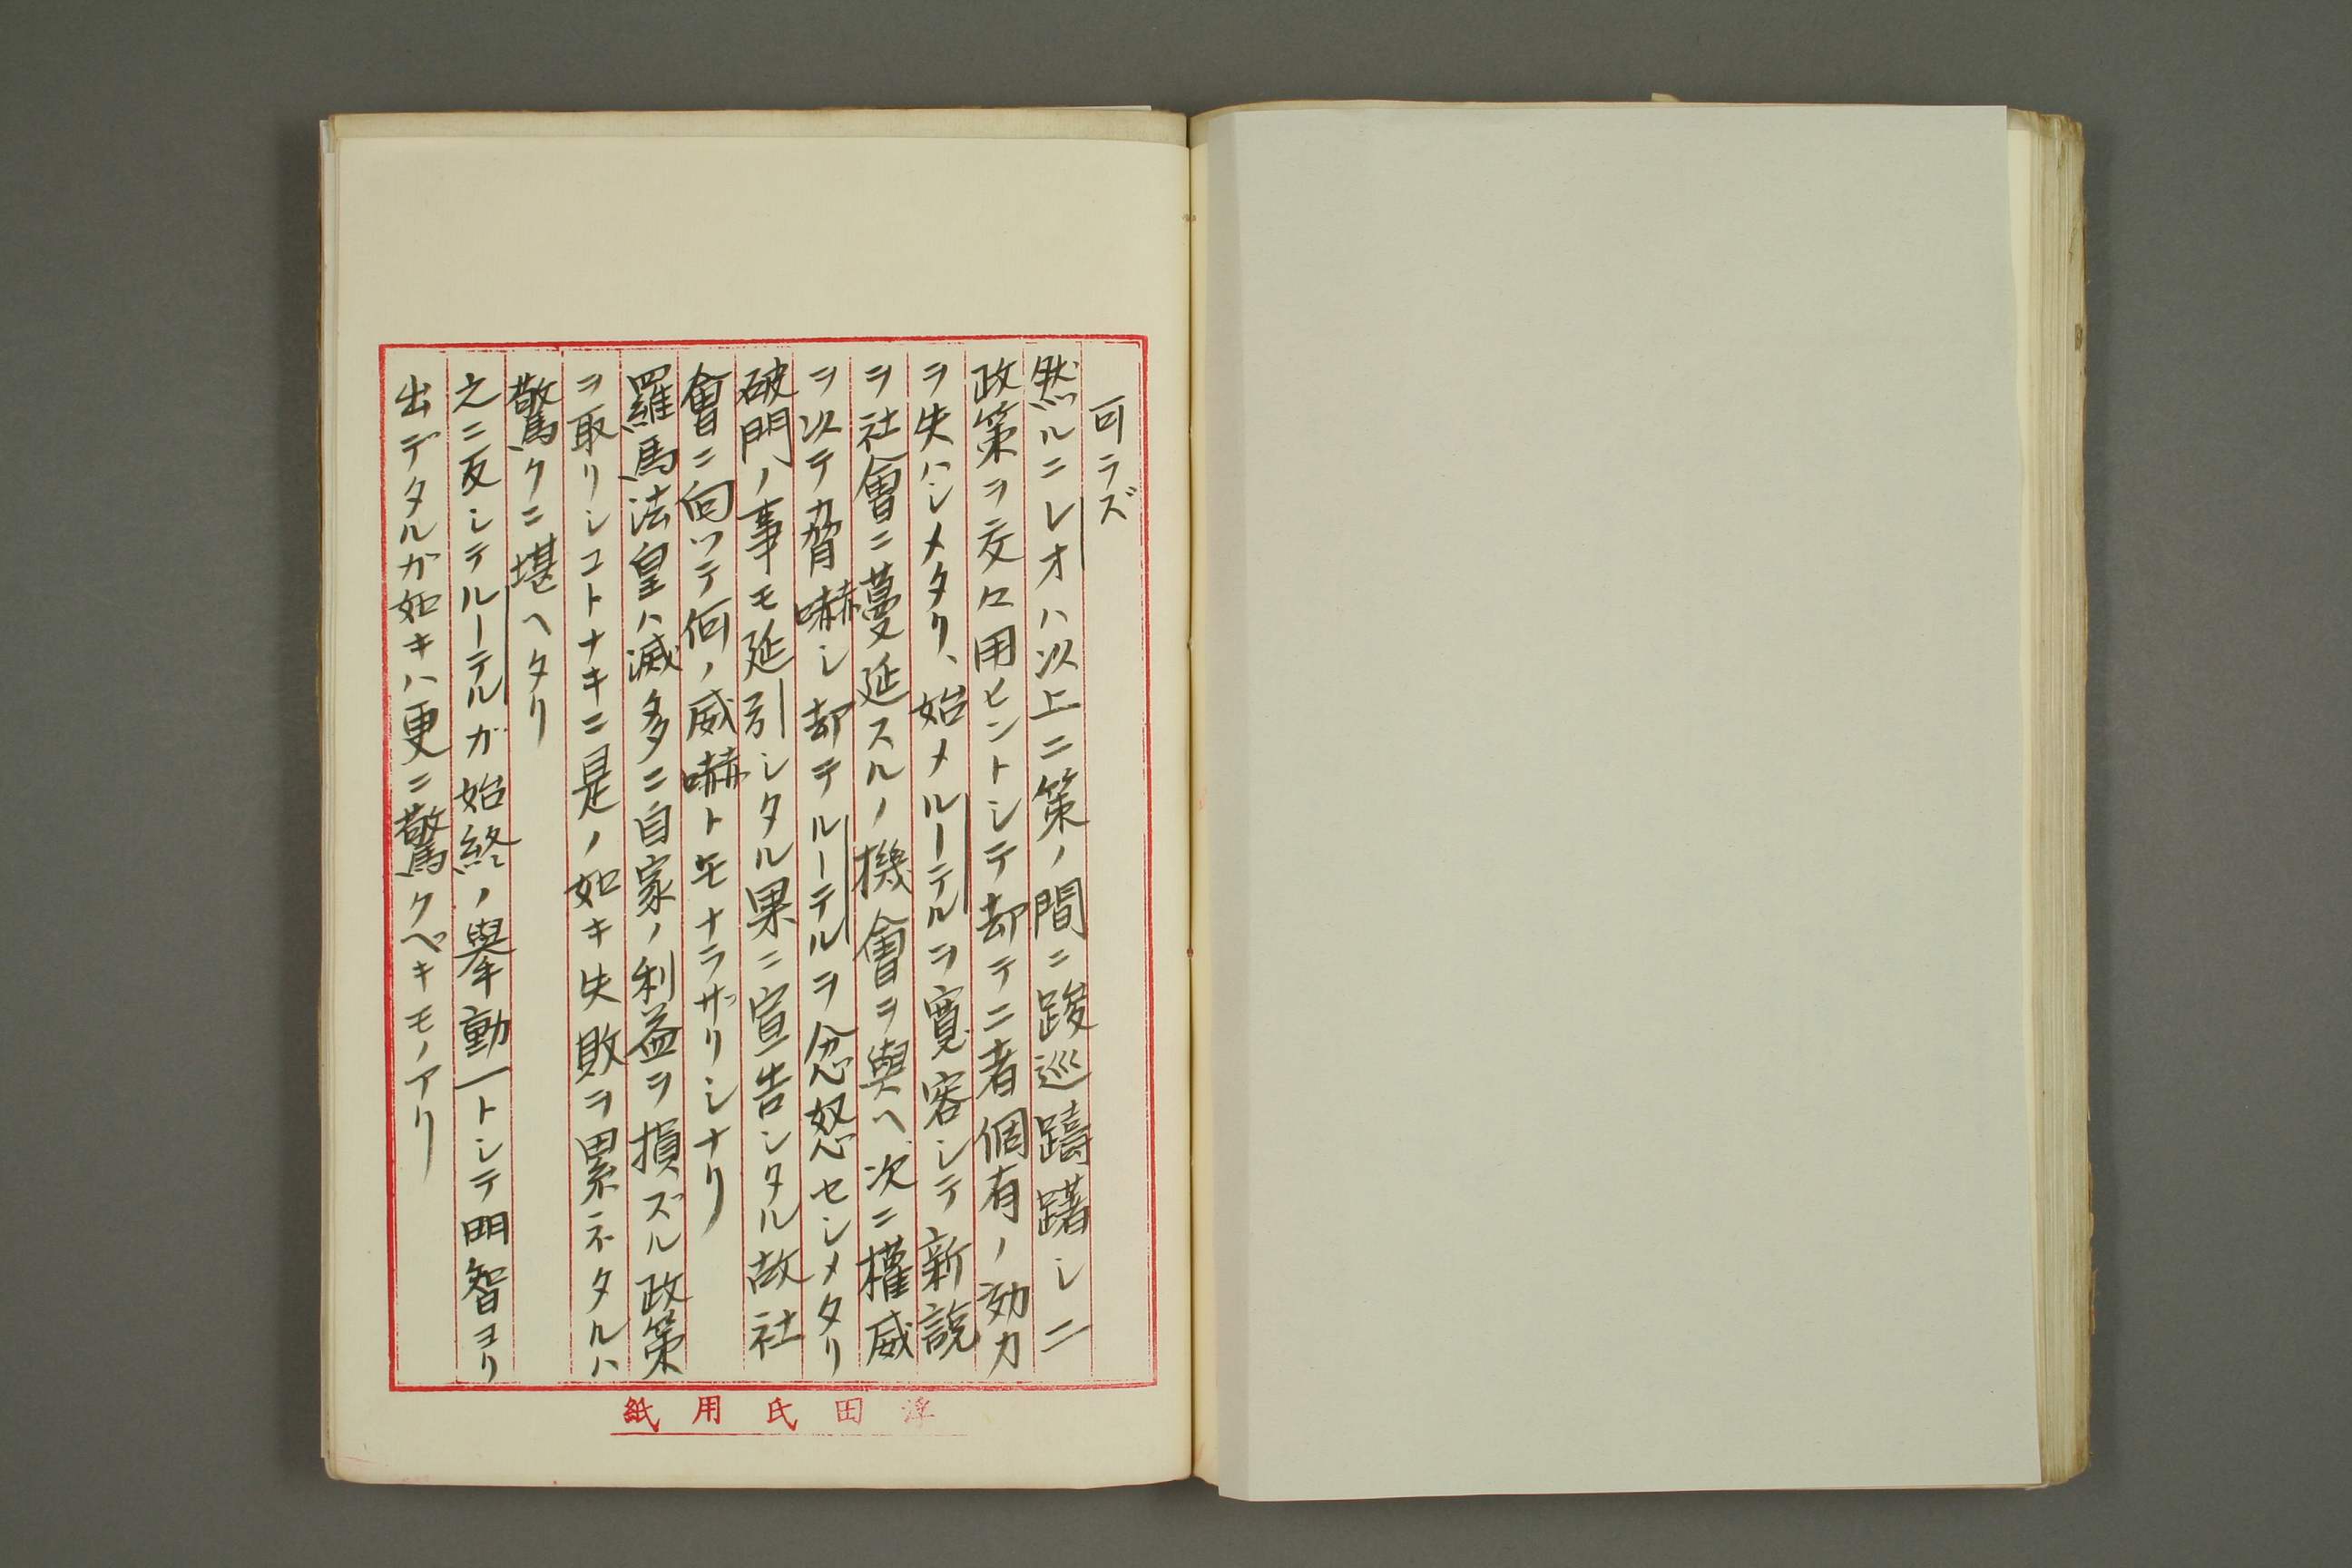 可ラズ
然ルニレオハ以上二策ノ間ニ踆巡躊躇シ二
政策ヲ交々用ヒントシテ却テ二者個有ノ効力
ヲ失ハシメタリ、始メルーテルヲ寛容シテ新説
ヲ社會ニ蔓延スルノ機會ヲ與ヘ次ニ權威
ヲ以テ脅嚇シ却テルーテルヲ忿怒セシメタリ
破門ノ事モ延引シタル果ニ宣告シタル故社
會ニ向ツテ何ノ威嚇トモナラザリシナリ
羅馬法皇ハ滅多ニ自家ノ利益ヲ損ズル政策
ヲ取リシコトナキニ是ノ如キ失敗ヲ累ネタルハ
驚クニ堪ヘタリ
之ニ反シテルーテルガ始終ノ擧動一トシテ明智ヨリ
出デタルガ如キハ更ニ驚クベキモノアリ
浮田氏用紙